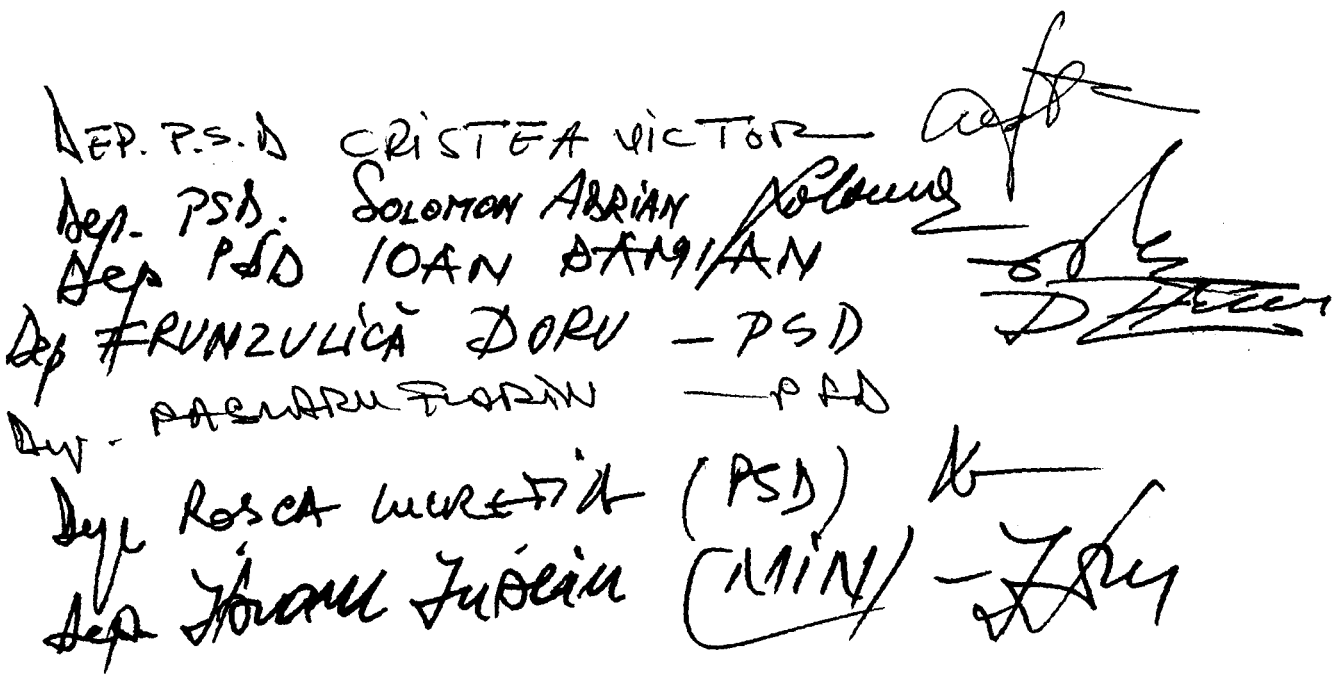 DEP. P.S.D CRISTEA VICTOR
Dep. PSD. SOLOMON ADRIAN Solomon
Dep PSD IOAN DAMIAN
Dep FRUNZULICĂ DORU - PSD
Dep. PÂSLARU FLORIN - PSD
Dep ROSCA LUCREȚIA (PSD)
Dep IUSEIN (MIN) -